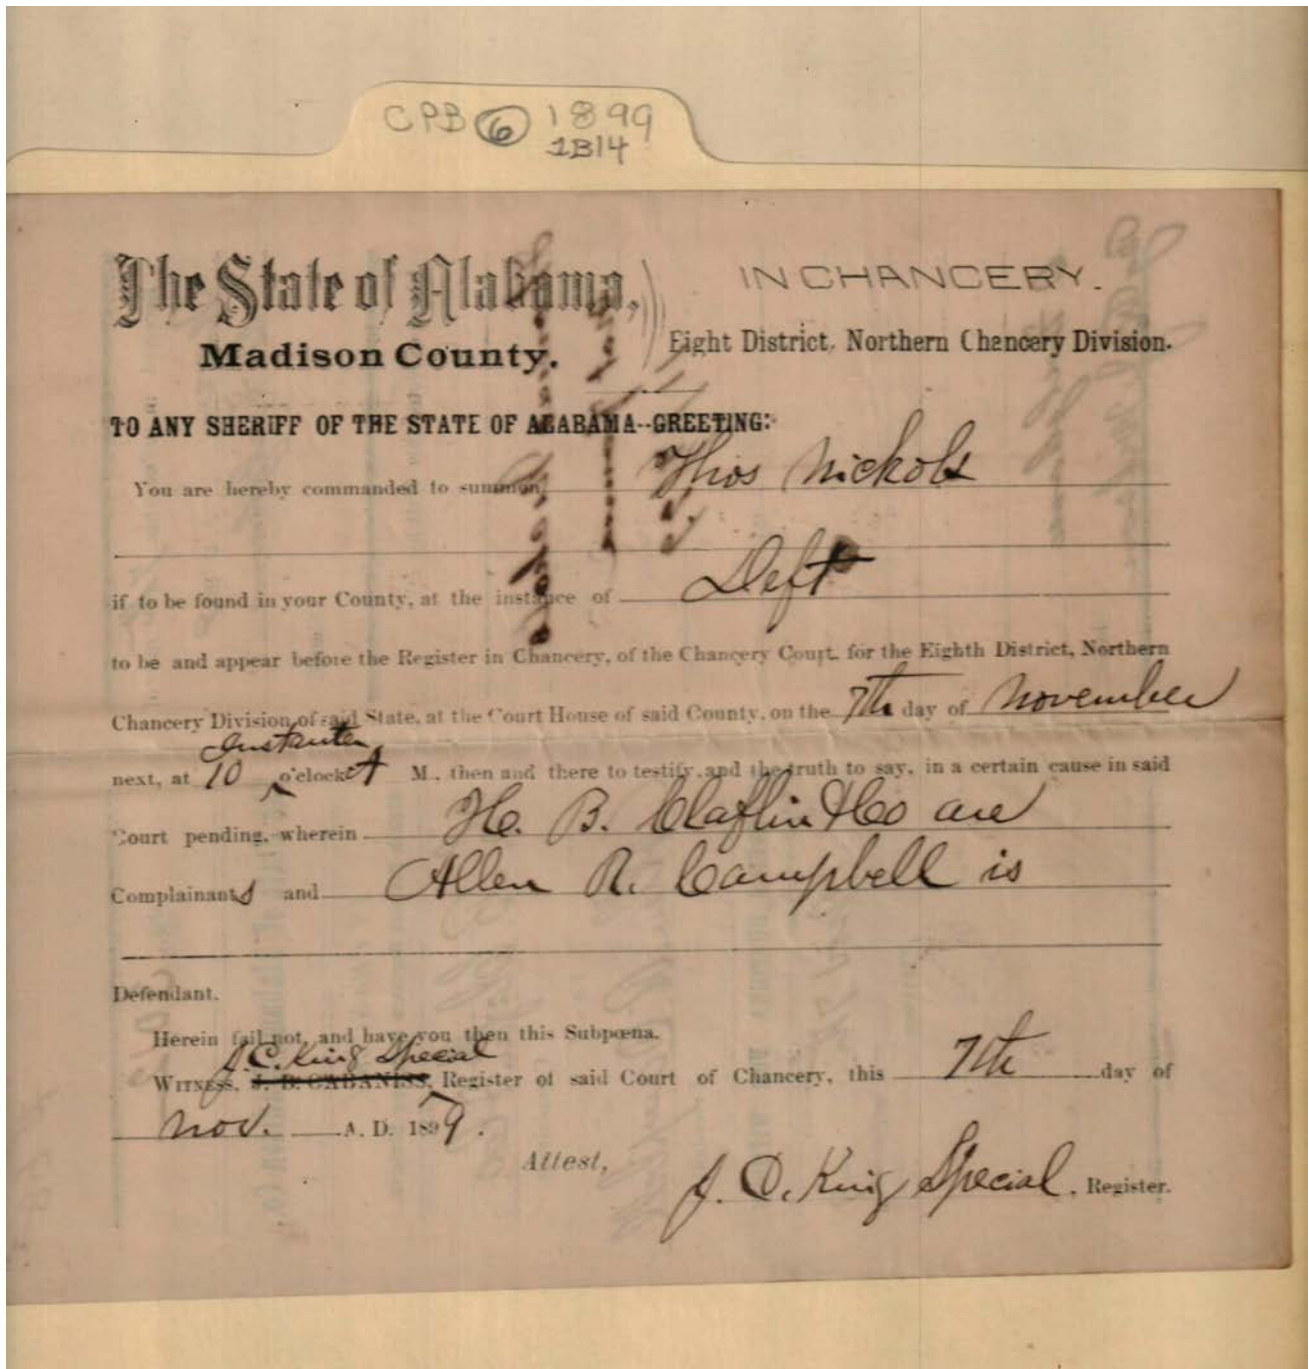 CPB 6 1899
1B14
The State of Alabama,
Madison County.
IN CHANCERY.
Eight District, Northern Chancery Division.
TO ANY SHERIFF OF THE STATE OF ALABAMA--GREETING:
You are hereby commanded to summon Thos Nickols
if to be found in your County, at the instance of Deft
to be and appear before the Register in Chancery, of the Chancery Court, for the Eighth District, Northern
Chancery Division of said State, at the Court House of said County, on the 7th day of November
Instanter
next, at 10 o'clock A M., then and there to testify, and the truth to say, in a certain cause in said
Court pending, wherein H. B. Claflin & Co are
Complainants and Allen R. Campbell is
Defendant.
Herein fail not, and have you then this Subpœna.
J. C. King Special
WITNESS, J. B. CABANISS, Register of said Court of Chancery, this 7th day of
Nov. A. D. 1899.
Attest,
J. C. King Special, Register.